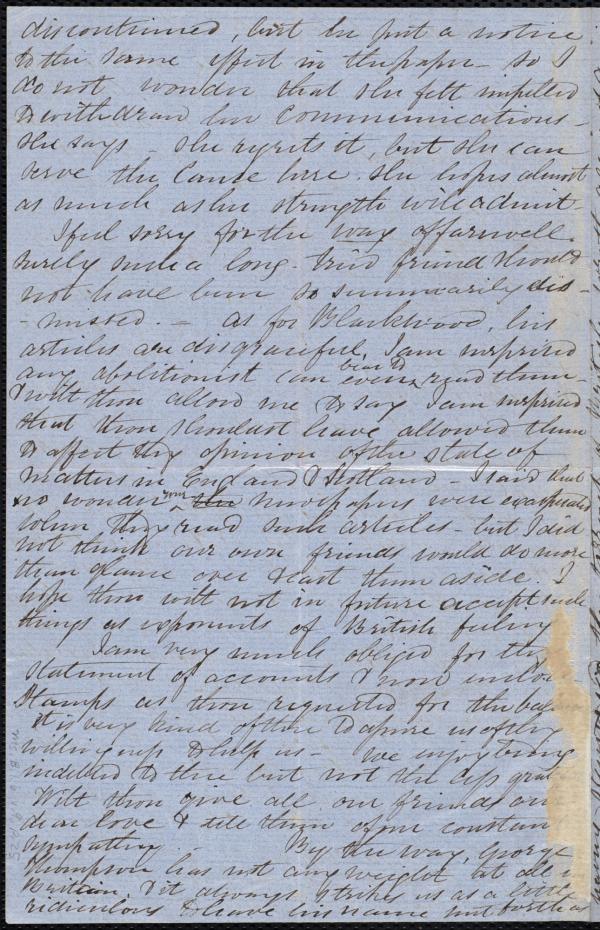 discontinued, but he put a notice
to the same effect in the paper - so I
do not wonder that she felt impelled
to withdraw her Communications -
She says - she regrets it, but she can
serve the Cause here. She hopes almost
as much as her strength will admit -
I feel sorry for the way of farewell.
surely such a long tried friend should
not have been so summarily dis-
-missed. - as for Blackwood, his
articles are disgraceful, I am surprised
bear to
any abolitionist can even read them -
& wilt thou allow me to say I am surprised
that thou shouldst have allowed them
to affect thy opinion of the state of
matters in England & Scotland - I said that
your
no wonder the newspapers were exasperated
when they read such articles - but I did
not think our own friends would do more
than glance over & cast them aside. I
hope thou wilt not in future accept such
things as exponents of British feeling
I am very much obliged for thy
statement of accounts & now enclose
Stamps as thou requested for the balance
it is very kind of thee to assure us of thy
willingness to help us - we enjoy being
indebted to thee but not the less grate
Wilt thou give all our friends our
dear love & tell them of our constant
sympathy. By the way, George
Thompson has not any weight at all in
Britain. & it always strikes us as a little
ridiculous to have his name put forth as